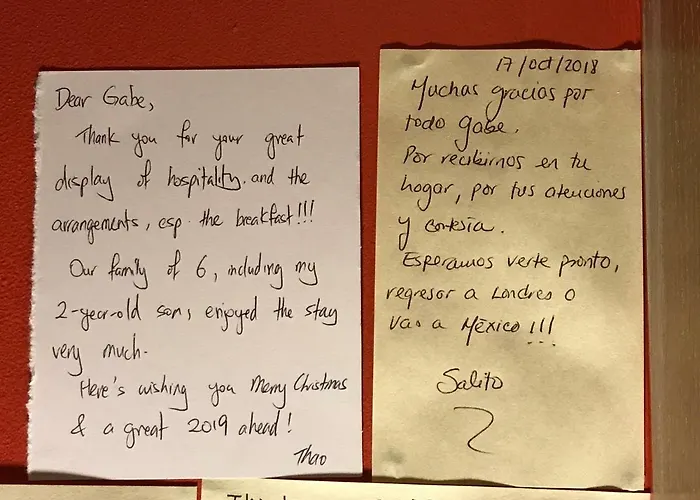 Dear Gabe,
Thank you for your great
display of hospitality. and the
arrangements, esp. the breakfast!!!
Our family of 6, including my
2-year-old son, enjoyed the stay
very much.
Here's wishing you Merry Christmas
& a great 2019 ahead!
Thao
17/oct/2018
Muchas gracias por
todo gabe.
Por recibirnos en tu
hogar, por tus atenciones
y cortesía.
Esperamos verte pronto,
regresar a Londres o
Vas a México!!!
Salito